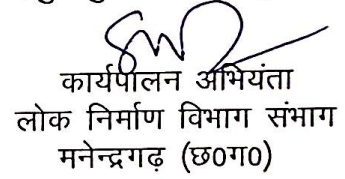 कार्यपालन अभियंता
लोक निर्माण विभाग संभाग
मनेन्द्रगढ़ (छ0ग0)